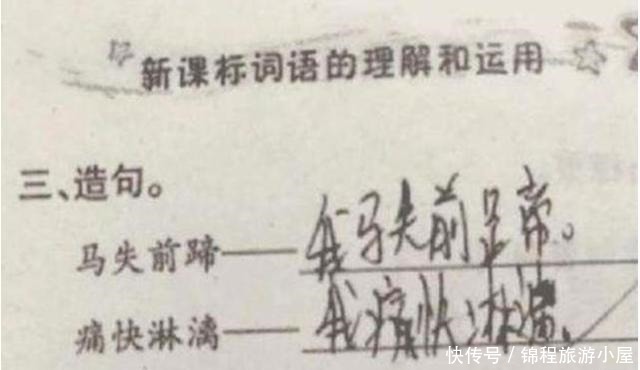 新课标词语的理解和运用
三、造句。
马失前蹄——我马失前蹄。
痛快淋漓——我痛快淋漓。
快传号/锦程旅游小屋